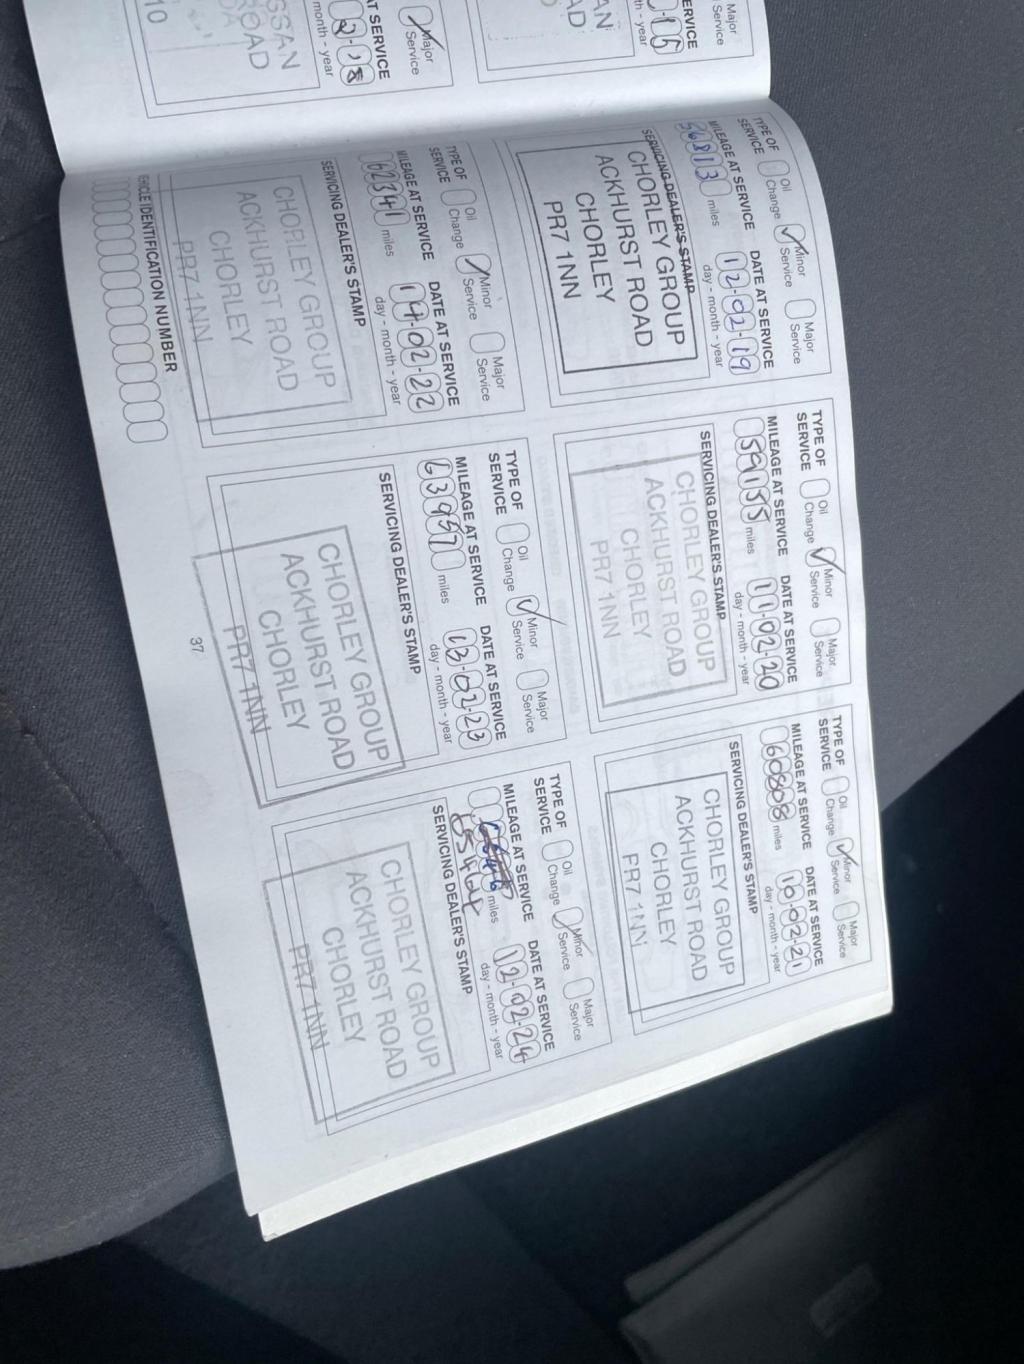 Major
Service
ERVICE
15
th - year
AN
AD
Major
Service
AT SERVICE
2-18
month - year
SSAN
ROAD
10
TYPE OF
SERVICE
Oil
Change
Minor
Service
Major
Service
MILEAGE AT SERVICE
56813 miles
DATE AT SERVICE
12-02-19
day - month - year
SERVICING DEALER'S STAMP
CHORLEY GROUP
ACKHURST ROAD
CHORLEY
PR7 1NN
TYPE OF
SERVICE
Oil
Change
Minor
Service
Major
Service
MILEAGE AT SERVICE
59155 miles
DATE AT SERVICE
11-02-20
day - month - year
SERVICING DEALER'S STAMP
CHORLEY GROUP
ACKHURST ROAD
CHORLEY
PR7 1NN
TYPE OF
SERVICE
Oil
Change
Minor
Service
Major
Service
MILEAGE AT SERVICE
60808 miles
DATE AT SERVICE
10-02-21
day - month - year
SERVICING DEALER'S STAMP
CHORLEY GROUP
ACKHURST ROAD
CHORLEY
PR7 1NN
TYPE OF
SERVICE
Oil
Change
Minor
Service
Major
Service
MILEAGE AT SERVICE
62341 miles
DATE AT SERVICE
14-02-22
day - month - year
SERVICING DEALER'S STAMP
CHORLEY GROUP
ACKHURST ROAD
CHORLEY
PR7 1NN
TYPE OF
SERVICE
Oil
Change
Minor
Service
Major
Service
MILEAGE AT SERVICE
63957 miles
DATE AT SERVICE
13-02-23
day - month - year
SERVICING DEALER'S STAMP
CHORLEY GROUP
ACKHURST ROAD
CHORLEY
PR7 1NN
TYPE OF
SERVICE
Oil
Change
Minor
Service
Major
Service
MILEAGE AT SERVICE
miles
DATE AT SERVICE
12-02-24
day - month - year
SERVICING DEALER'S STAMP
CHORLEY GROUP
ACKHURST ROAD
CHORLEY
PR7 1NN
EHICLE IDENTIFICATION NUMBER
37